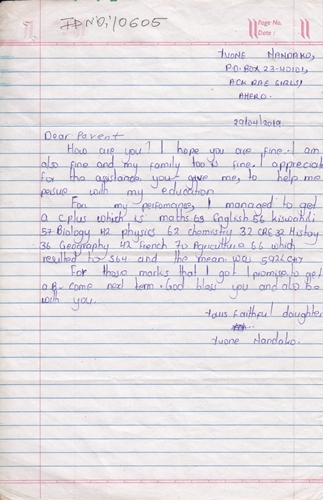 ID NO; 10605
Page No.
Date :
YVONE NANDAKO,
P.O. BOX 23-40101,
ACK RAE GIRLS,
AHERO.
29/04/2019
Dear Parent
How are you? I hope you are fine. I am
also fine and my family too is fine. I appreciate
for the assistance you give me, to help me
persue with my education
For my perfomance, I managed to get
a C plus which is maths 63 English 56 kiswahili
57 Biology 42 physics 62 chemistry 32 CRE 32 History
36 Geography 42 French 70 Agriculture 66 which
resulted to 564 and the mean was
For those marks that I got I promise to get
a B- come next term. God bless you and also be
with you.
Yours Faithful daughter
Yvone Nandako.